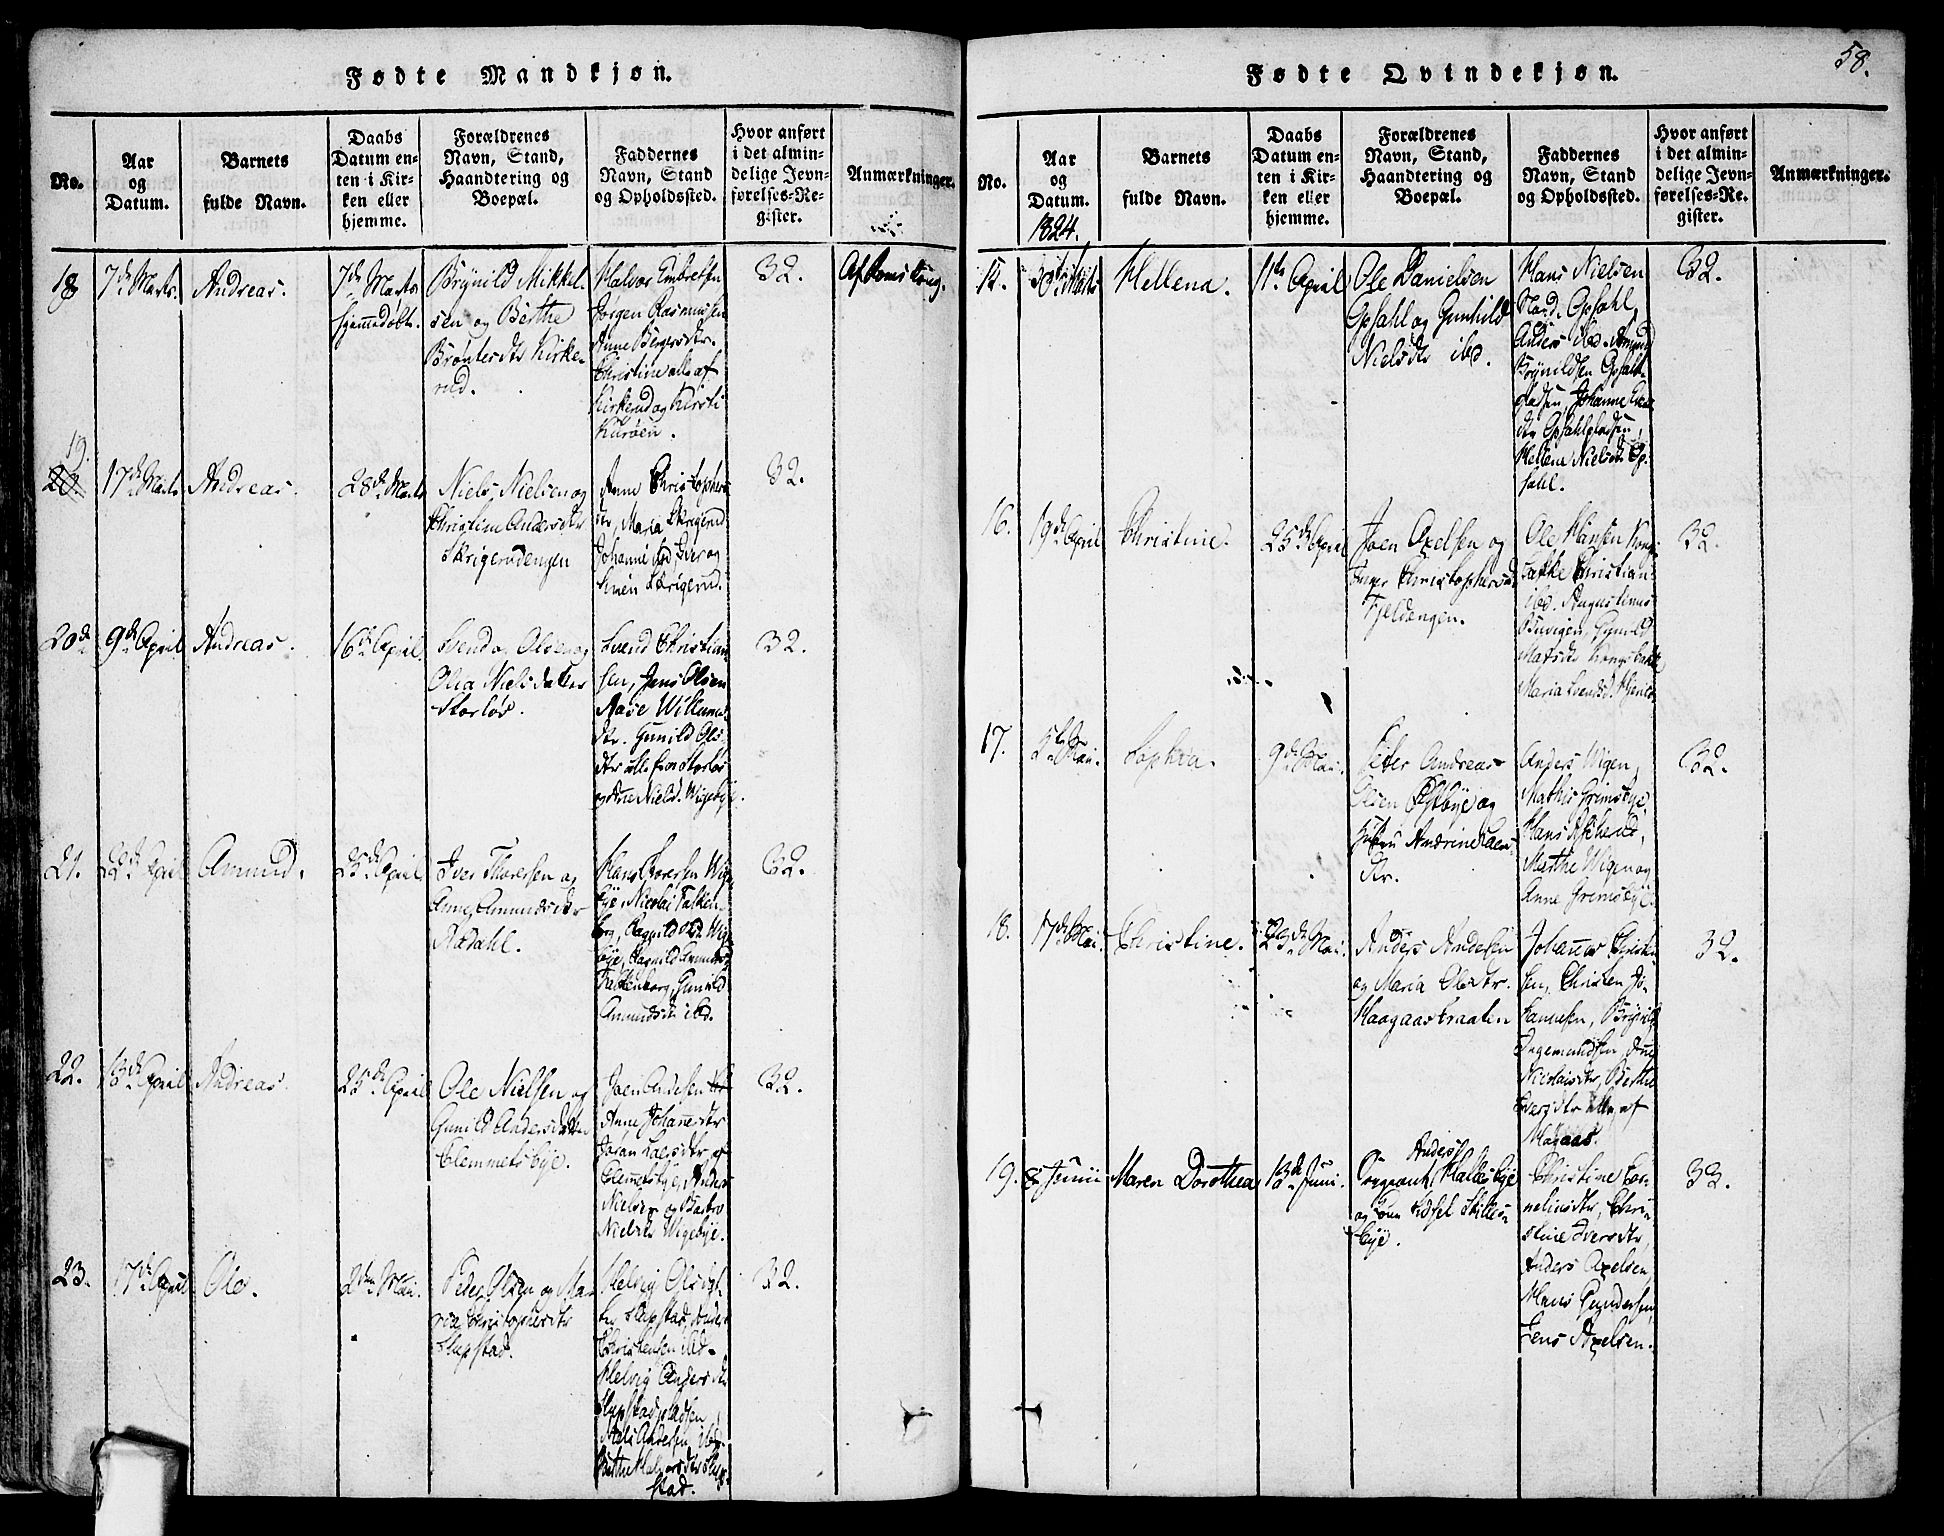 58.
Fødte Mandkjøn.
No.
Aar
og
Datum.
Barnets
fulde Navn.
Daabs
Datum en-
ten i Kir-
ken eller
hjemme.
Forældrenes
Navn, Stand,
Haandtering og
Boepæl.
Faddernes
Navn, Stand
og Opholdssted.
Hvor anført
i det almin-
delige Jevn-
førelses-Re-
gister.
Anmærkninger.
18
7de Marts.
Andreas.
7de Marts
hjemmedøbt.
Brynild Mikkel-
sen og Berthe
Kirke-
rud.
Halvor Embretsen
Jørgen Rasmussen
Anne Bergersdtr.
Christine alle af
Kirkerud og Kirsti
Kurøen.
32.
19.
20.
17de Marts
Andreas.
28de Marts
Niels Nielsen og
Christine Andersdtr
Skrigerudengen
Anne Christophers
dtr, Maria Skrigerud
Johanne ibd, Iver og
Simen Skrigerud.
32.
20de
9de April
Andreas.
16de April
Svend Olsen og
Olea Nielsdatter
Storløs.
Svend Christian-
sen, Jens Olsen
Aase Willums
dtr. Gunild Ols-
dtr alle fra Storløs
og Ane Nielsd. Wigebye.
32.
21.
22de April
Amund.
25de April
Iver Thoresen og
Anne Amundsdtr
Aadahl.
Hans Thoresen Wige-
bye, Nicolai Falken-
borg, Ragnild Wige-
bye, Ragnild
Falkenborg, Gunild
Amundsdtr ibd.
32.
22.
13de April
Andreas.
25de April
Ole Nielsen og
Gunild Andersdatter
Clemmetsbye.
Joen Andersen
Anne Johannesdtr
Joran Larsdtr af
Clemmetsbye, Anders
Nielsen og Barbro
Nielsdtr Wigebye.
32.
23.
17de April
Ole.
2den Mai.
Peder Olsen og Ma-
ria Christophersdtr
Slupstad.
Helvig Olsdat-
ter Slupstad, Anders
Christensen ibd.
Helvig Andersdtr
Slupstadpladsen,
Niels Andersen ibd.
Berthe Halvorsdtr Slup-
stad.
32.
Fødte Qvindekjøn.
No.
Aar
og
Datum.
1824.
Barnets
fulde Navn.
Daabs
Datum en-
ten i Kir-
ken eller
hjemme.
Forældrenes
Navn, Stand,
Haandtering og
Boepæl.
Faddernes
Navn, Stand
og Opholdssted.
Hvor anført
i det almin-
delige Jevn-
førelses-Re-
gister.
Anmærkninger.
15.
30te Marts
Hellena.
11te April
Ole Danielsen
Opsahl og Gunhild
Nielsdtr ibd.
Hans Nielsen
Nord. Opsahl,
Anders ibd. Amund
Brynildsen Opsahl-
pladsen, Johanne
dtr Opsahlpladsen,
Hellene Nielsdtr Op-
sahl.
32.
16.
19de April
Christine.
25de April
Joen Axelsen og
Inger Christophersd.
Fjeldengen.
Ole Hansen Kongs-
bakke Christian
ibd. Augustinus
Buvigen, Gunild
Matsdtr Kongsbakke
Maria Svendsd.
32.
17.
5te Mai.
Sophia.
9de Mai.
Peter Andreas
Olsen Østbye og
Hustru Andrine Lars-
dtr.
Anders Wigen,
Mathis Grimsbye,
Hans
Marthe Wigen og
Anne Grimsbye.
32.
18.
17de Mai
Christine.
23de Mai.
Anders Andersen
og Maria Olsdtr.
Haagaasbraaten
Johannes Christen-
sen, Christen Jo-
hannesen, Brynild
Ingemundsen, Anne
Nicolaisdtr, Berthe
Iversdtr alle af
Hagaas.
32.
19.
8 Junii
Maren Dorothea
13de Juni.
Anders
Haldesbye
og
bye.
Christine Cor-
neliusdtr, Chri-
stine Iversdtr,
Anders Axelsen,
Hans Gundersen,
Jens Axelsen.
33.